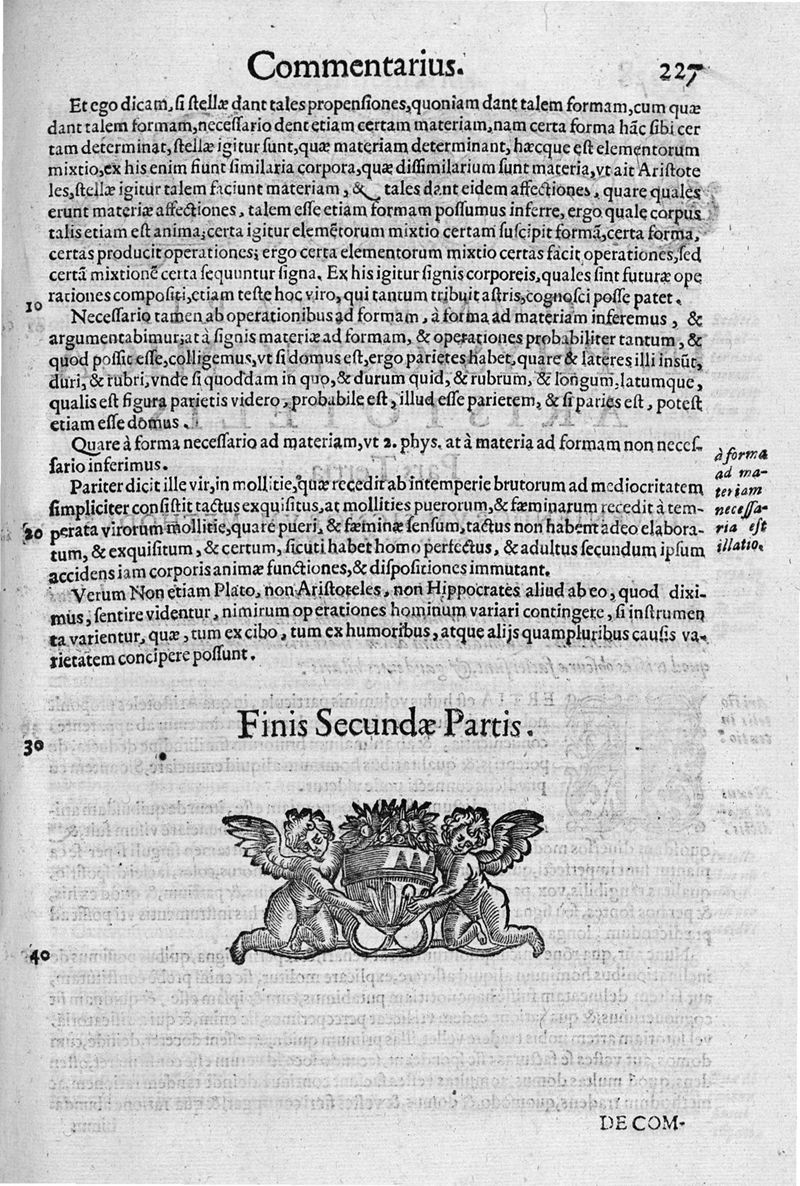 Commentarius.
227
Et ego dicam, si stellæ dant tales propensiones, quoniam dant talem formam, cum quæ
dant talem formam, necessario dent etiam certam materiam, nam certa forma hãc sibi cer
tam determinat, stellæ igitur sunt, quæ materiam determinant, hæcque est elementorum
mixtio, ex his enim fiunt similaria corpora, quæ dissimilarium sunt materia, vt ait Aristote
les, stellæ igitur talem faciunt materiam, & tales dant eidem affectiones, quare quales
erunt materiæ affectiones, talem esse etiam formam possumus inferre, ergo quale corpus
talis etiam est anima; certa igitur elemẽtorum mixtio certam suscipit formã, certa forma,
certas producit operationes; ergo certa elementorum mixtio certas facit operationes, sed
certã mixtionẽ certa sequuntur signa. Ex his igitur signis corporeis, quales sint futuræ ope
rationes compositi, etiam teste hoc viro, qui tantum tribuit astris, cognosci posse patet.
10
Necessario tamen ab operationibus ad formam, à forma ad materiam inferemus, &
argumentabimur; at à signis materiæ ad formam, & operationes probabiliter tantum, &
quod possit esse, colligemus, vt si domus est, ergo parietes habet, quare & lateres illi insũt,
duri, & rubri, vnde si quoddam in quo, & durum quid, & rubrum, & longum, latumque,
qualis est figura parietis videro, probabile est, illud esse parietem, & si paries est, potest
etiam esse domus.
Quare à forma necessario ad materiam, vt 2. phys. at à materia ad formam non neces-
sario inferimus.
à forma
ad ma-
teriam
necessa-
ria est
illatio.
Pariter dicit ille vir, in mollitie, quæ recedit ab intemperie brutorum ad mediocritatem
simpliciter consistit tactus exquisitus, at mollities puerorum, & fæminarum recedit à tem-
20
perata virorum mollitie, quare pueri, & fæminæ sensum, tactus non habent adeo elabora-
tum, & exquisitum, & certum, sicuti habet homo perfectus, & adultus secundum ipsum
accidens iam corporis animæ functiones, & dispositiones immutant.
Verum Non etiam Plato, non Aristoteles, non Hippocrates aliud ab eo, quod dixi-
mus, sentire videntur, nimirum operationes hominum variari contingere, si instrumen
ta varientur, quæ, tum ex cibo, tum ex humoribus, atque alijs quampluribus causis va-
rietatem concipere possunt.
Finis Secundæ Partis.
30
40
DE COM-